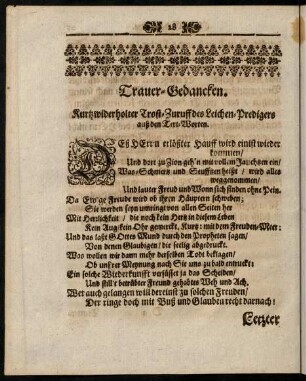 28
Trauer-Gedancken.
Kurtzwiderholter Trost-Zuruff des Leichen-Predigers
auß den Text-Worten.
DES HErrn erlößter Hauff wird einst wieder
kommen/
Und dort zu Zion geh'n mit vollem Jauchzen ein/
Was Schmertz und Seufftzen heißt/ wird alles
weggenommen/
Und lauter Freud und Wonn sich finden ohne Pein.
Da Ew'ge Freude wird ob ihren Häuptern schweben;
Sie werden seyn umringt von allen Seiten her
Mit Herzlichkeit/ die noch kein Hertz in diesem Leben
Kein Aug/kein Ohr gemerckt, Kurtz: mit dem Freuden-Meer:
Und das läßt Gottes Mund durch den Propheten sagen/
Von denen Glaubigen/ die seelig abgedruckt.
Was wollen wir dann mehr derselben Todt beklagen/
Ob unsrer Meynung nach Sie uns zu bald entruckt:
Ein solche Wiederkunfft versüsset ja das Scheiden/
Und stillt betrübter Freund gehabtes Weh und Ach,
Wer auch gelangen will dereinst zu solchen Freuden/
Der ringe doch mit Buß und Glauben recht darnach!
Letzter